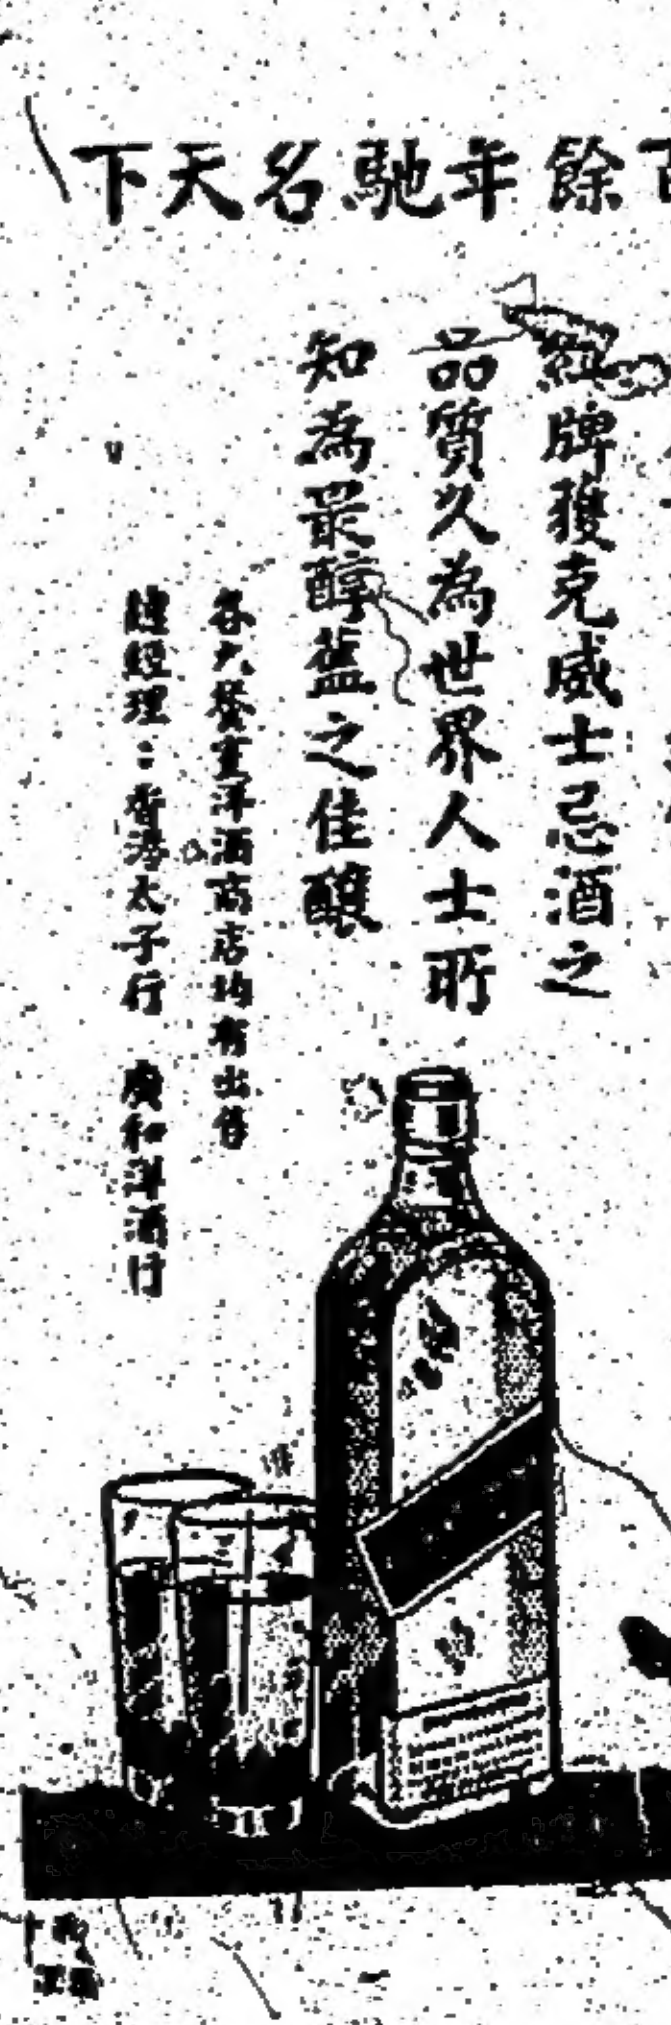 餘年馳名天下
紅牌獲克威士忌酒之
品質久為世界人士所
知為最醇舊之佳釀
各大餐室洋酒商店均有出售
總經理：香港太子行 廣和洋酒行